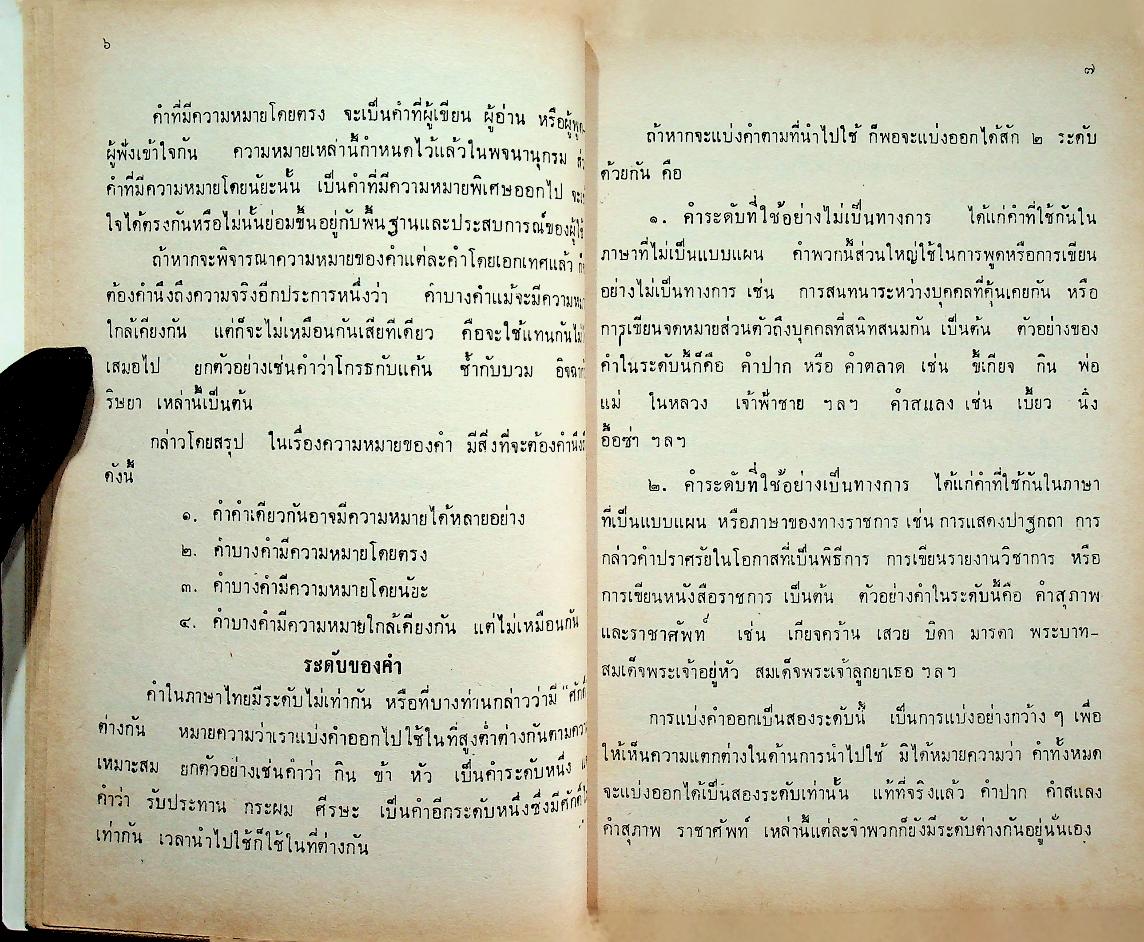 ๖
คำที่มีความหมายโดยตรง จะเป็นคำที่ผู้เขียน ผู้อ่าน หรือผู้พูด
ผู้ฟังเข้าใจกัน ความหมายเหล่านี้กำหนดไว้แล้วในพจนานุกรม
คำที่มีความหมายโดยนัยะนั้น เป็นคำที่มีความหมายพิเศษออกไป
ใจได้ตรงกันหรือไม่นั้นย่อมขึ้นอยู่กับพื้นฐานและประสบการณ์ของผู้ใช้
ถ้าหากจะพิจารณาความหมายของคำแต่ละคำโดยเอกเทศแล้ว
ต้องคำนึงถึงความจริงอีกประการหนึ่งว่า คำบางคำแม้จะมีความ
ใกล้เคียงกัน แต่ก็จะไม่เหมือนกันเสียทีเดียว คือจะใช้แทนกันไม่
เสมอไป ยกตัวอย่างเช่นคำว่าโกรธกับแค้น ช้ำกับบวม
ริษยา เหล่านี้เป็นต้น
กล่าวโดยสรุป ในเรื่องความหมายของคำ มีสิ่งที่จะต้องคำนึง
ดังนี้
๑. คำคำเดียวกันอาจมีความหมายได้หลายอย่าง
๒. คำบางคำมีความหมายโดยตรง
๓. คำบางคำมีความหมายโดยนัยะ
๔. คำบางคำมีความหมายใกล้เคียงกัน แต่ไม่เหมือนกัน
ระดับของคำ
คำในภาษาไทยมีระดับไม่เท่ากัน หรือที่บางท่านกล่าวว่ามี
ต่างกัน หมายความว่าเราแบ่งคำออกไปใช้ในที่สูงต่ำต่างกันตาม
เหมาะสม ยกตัวอย่างเช่นคำว่า กิน ข้า หัว เป็นคำระดับหนึ่ง
คำว่า รับประทาน กระผม ศีรษะ เป็นคำอีกระดับหนึ่งซึ่งมี
เท่ากัน เวลานำไปใช้ก็ใช้ในที่ต่างกัน
๗
ถ้าหากจะแบ่งคำตามที่นำไปใช้ ก็พอจะแบ่งออกได้สัก ๒ ระดับ
ด้วยกัน คือ
๑. คำระดับที่ใช้อย่างไม่เป็นทางการ ได้แก่คำที่ใช้กันใน
ภาษาที่ไม่เป็นแบบแผน คำพวกนี้ส่วนใหญ่ใช้ในการพูดหรือการเขียน
อย่างไม่เป็นทางการ เช่น การสนทนาระหว่างบุคคลที่คุ้นเคยกัน หรือ
การเขียนจดหมายส่วนตัวถึงบุคคลที่สนิทสนมกัน เป็นต้น ตัวอย่างของ
คำในระดับนี้ก็คือ คำปาก หรือ คำตลาด เช่น ขี้เกียจ กิน พ่อ
แม่ ในหลวง เจ้าฟ้าชาย ฯลฯ คำสแลง เช่น เบี้ยว นิ้ง
อื้อซ่า ฯลฯ
๒. คำระดับที่ใช้อย่างเป็นทางการ ได้แก่คำที่ใช้กันในภาษา
ที่เป็นแบบแผน หรือภาษาของทางราชการ เช่น การแสดงปาฐกถา การ
กล่าวคำปราศรัยในโอกาสที่เป็นพิธีการ การเขียนรายงานวิชาการ หรือ
การเขียนหนังสือราชการ เป็นต้น ตัวอย่างคำในระดับนี้คือ คำสุภาพ
และราชาศัพท์ เช่น เกียจคร้าน เสวย บิดา มารดา พระบาท-
สมเด็จพระเจ้าอยู่หัว สมเด็จพระเจ้าลูกยาเธอ ฯลฯ
การแบ่งคำออกเป็นสองระดับนี้ เป็นการแบ่งอย่างกว้าง ๆ เพื่อ
ให้เห็นความแตกต่างในด้านการนำไปใช้ มิได้หมายความว่า คำทั้งหมด
จะแบ่งออกได้เป็นสองระดับเท่านั้น แท้ที่จริงแล้ว คำปาก คำสแลง
คำสุภาพ ราชาศัพท์ เหล่านี้แต่ละจำพวกก็ยังมีระดับต่างกันอยู่นั่นเอง